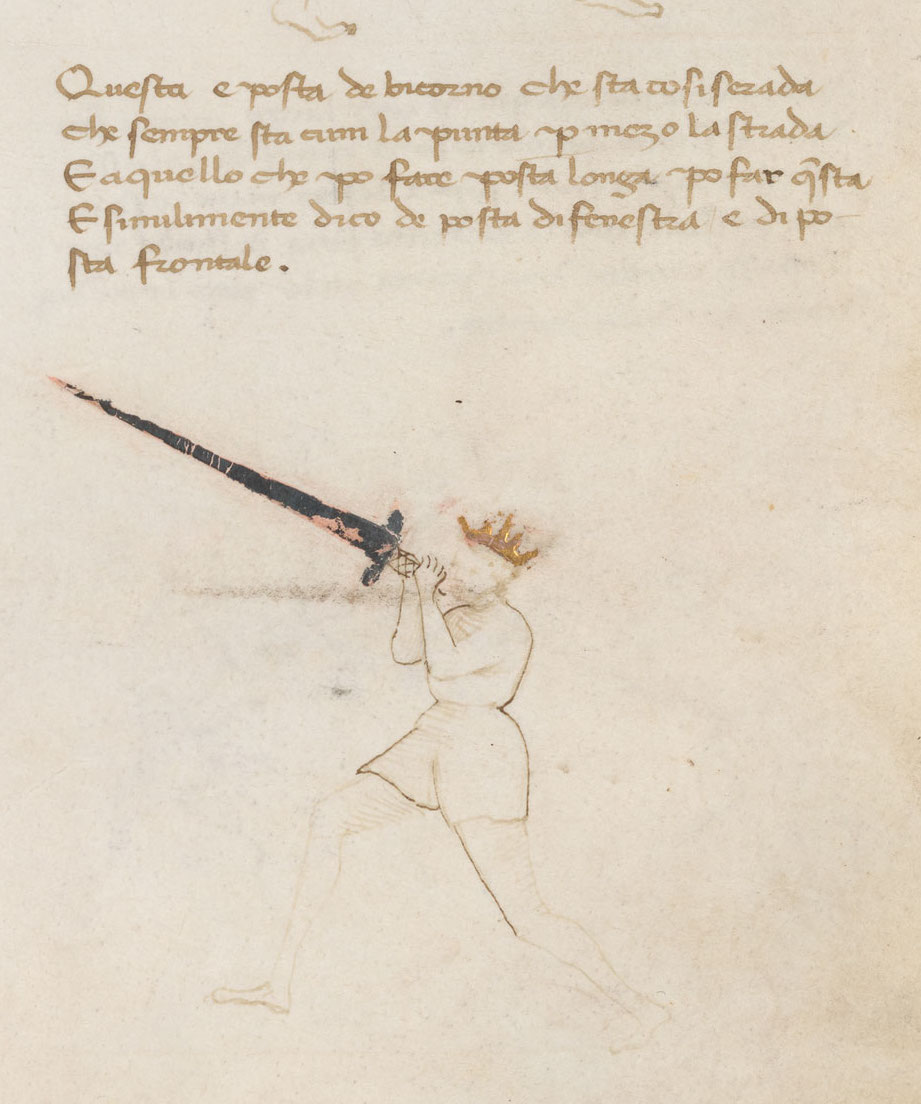 Questa e posta de bicorno che sta cosi serada
che sempre sta cum la punta p mezo la strada
E aquello che po fare posta longa po far q̃sta
E similimente dico de posta di fenestra e di po-
sta frontale.